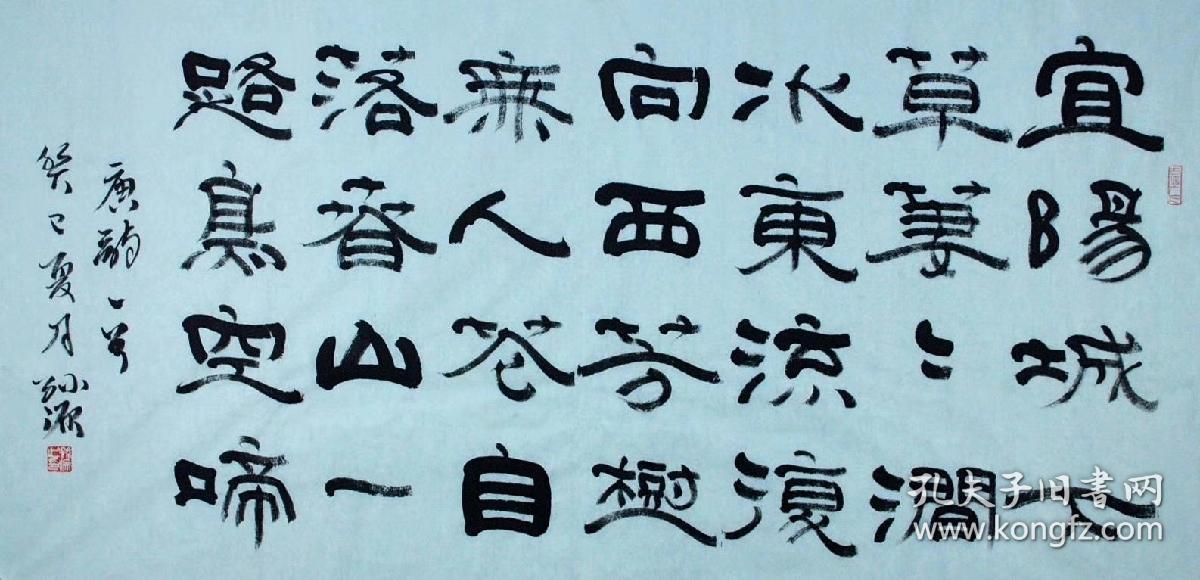 宜陽城下
草萋〻澗
水東流復
向西芳樹
無人花自
落春山一
路鳥空啼
唐詩一首
癸巳夏月
孔夫子旧书网
www.kongfz.com